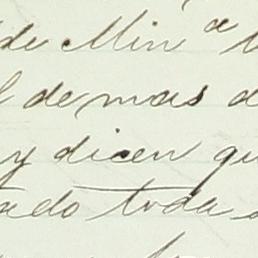 de Min^a
demas
y dicen qu
ado toda